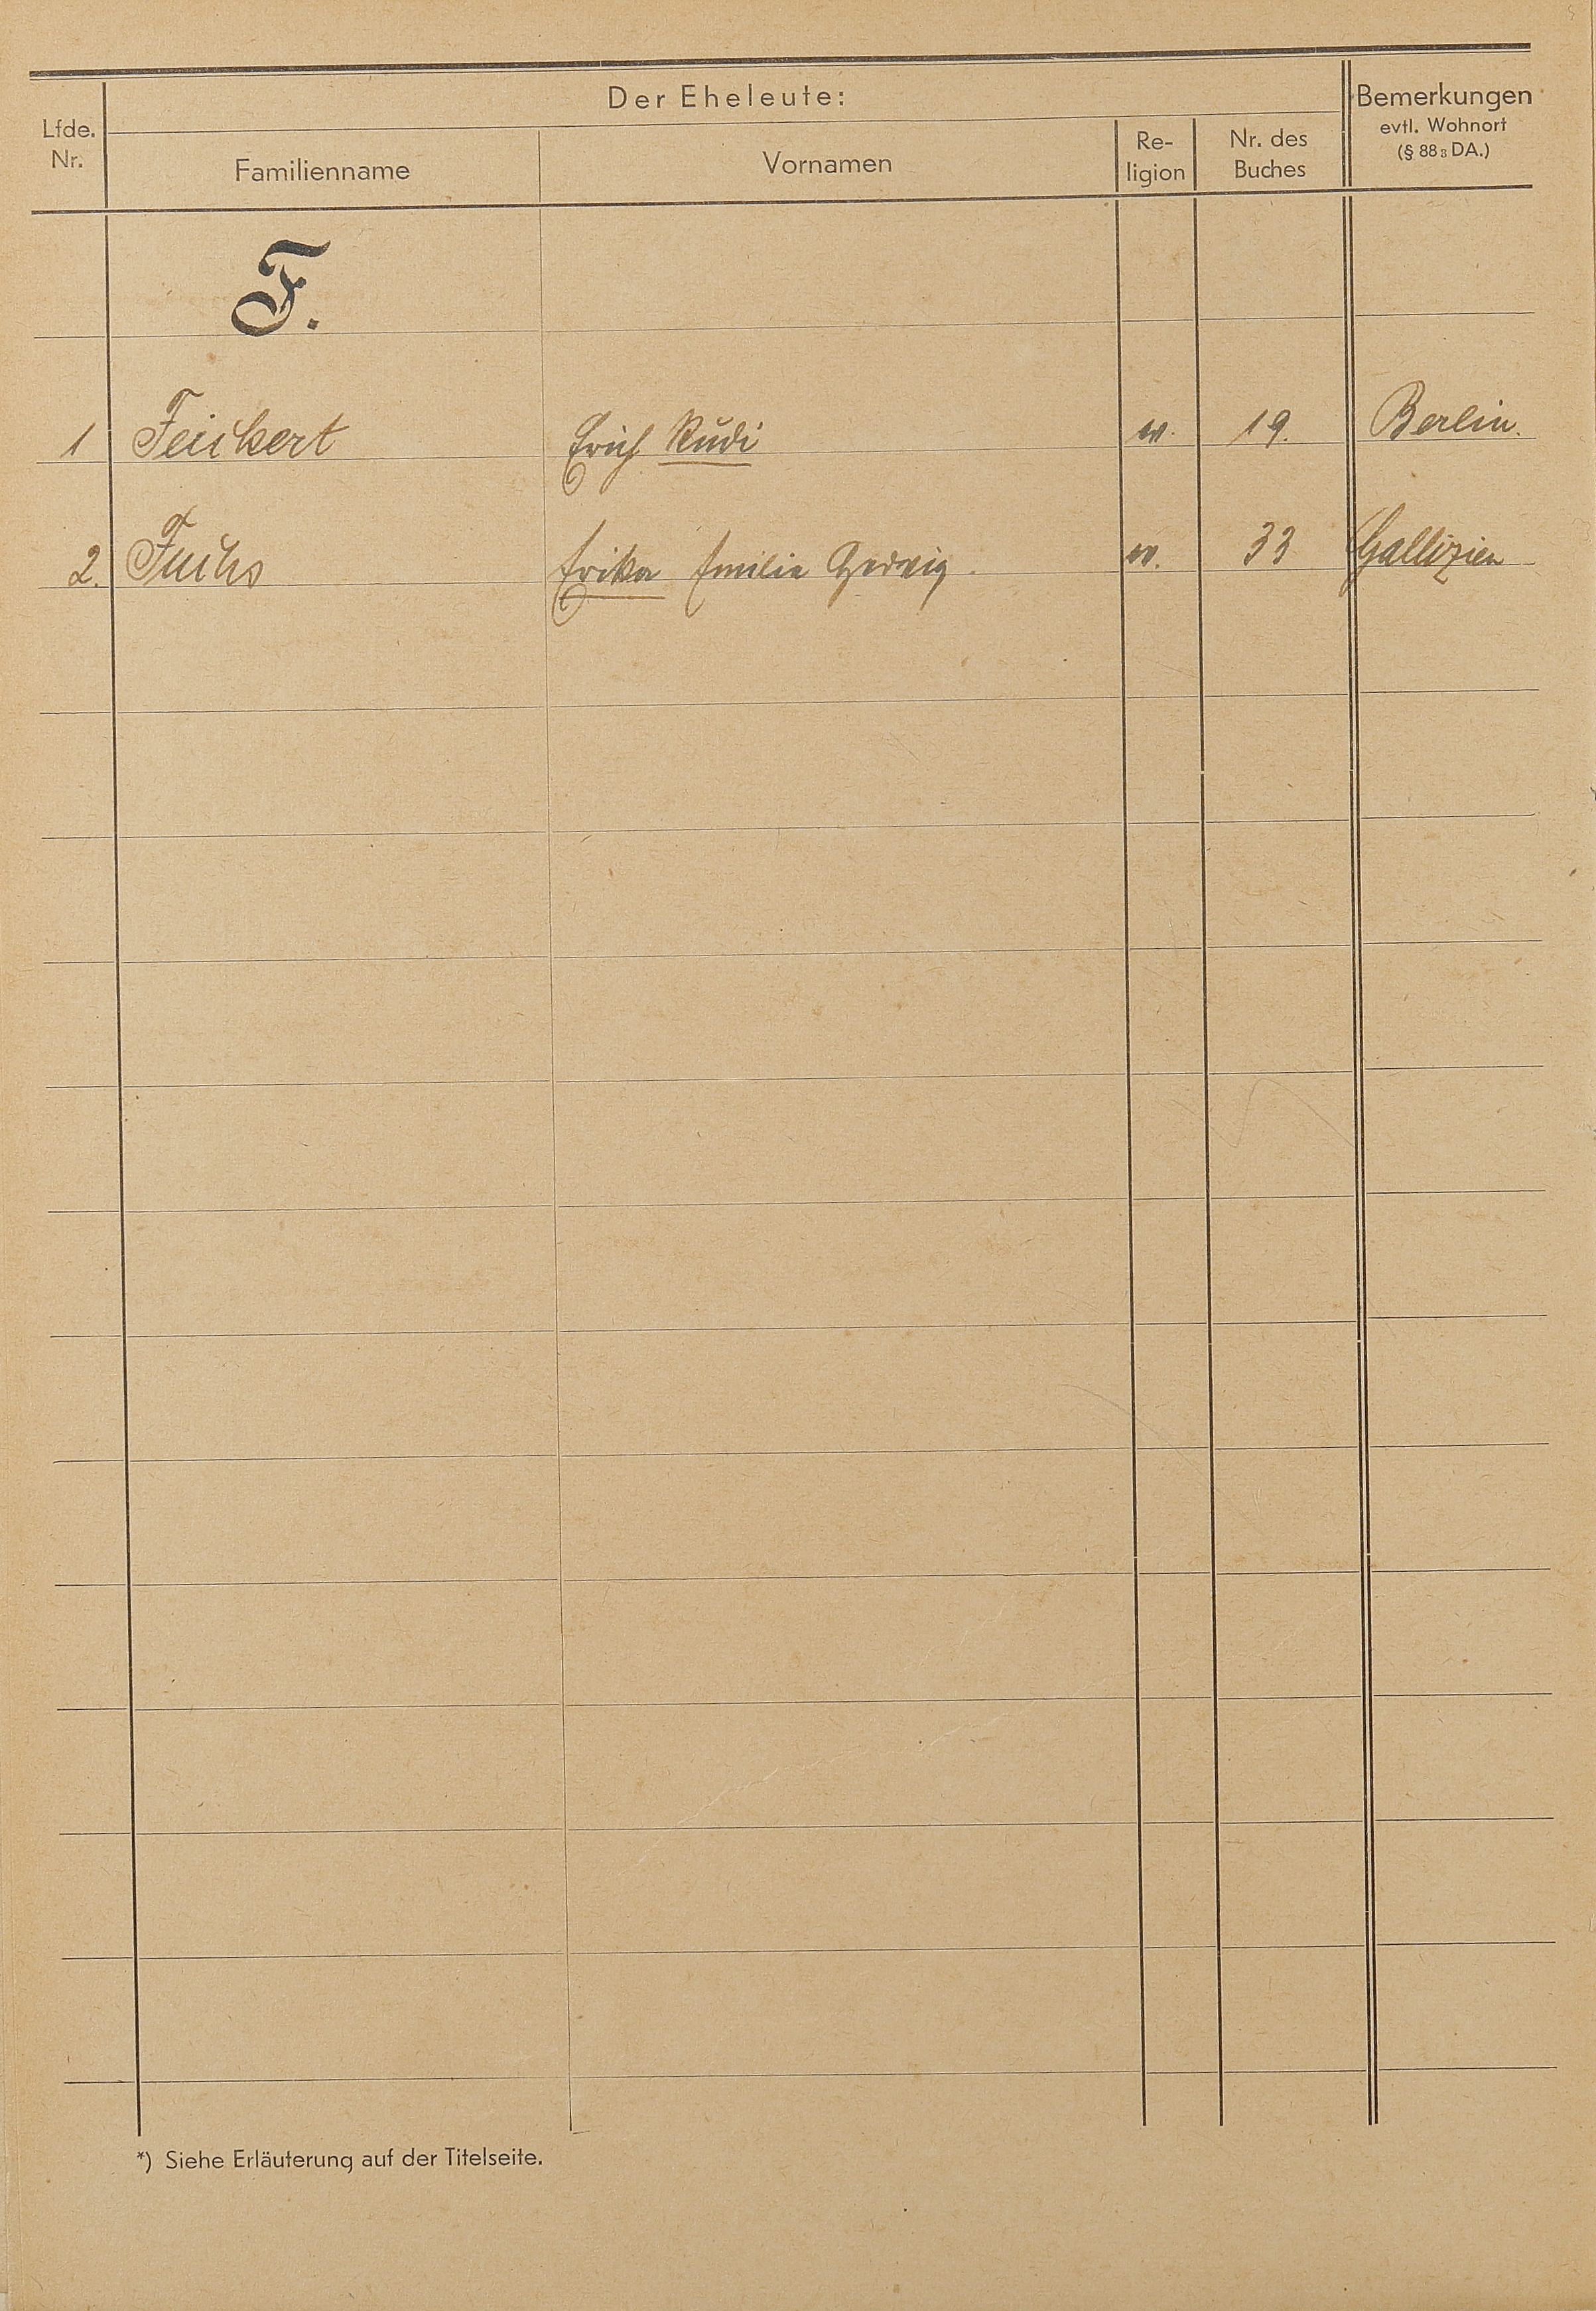 Der Eheleute:
Lfde. Nr. Familienname Vornamen Re-ligion Nr. des Buches Bemerkungen evtl. Wohnort (§ 88 3 DA.)
F.
1 Feickert Erich Rudi ev. 19. Berlin.
2. Fuchs Erika Emilie Hedwig. ev. 33 Gallizien
*) Siehe Erläuterung auf der Titelseite.